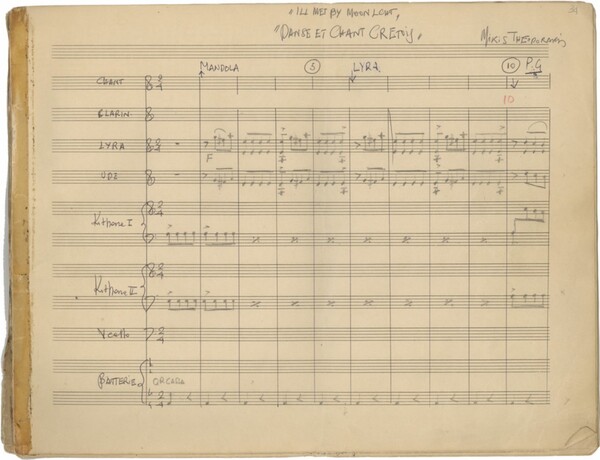 "ILL MET BY MOON LGHT,
"DANSE ET CHANT CRETOIS"
MIKIS THEODORAKIS
MANDOLA
5
LYRA
10
P.G
10
CHANT
CLARIN.
LYRA
F
UDE
Kithare I
Kithare II
Vcello
BATTERIE